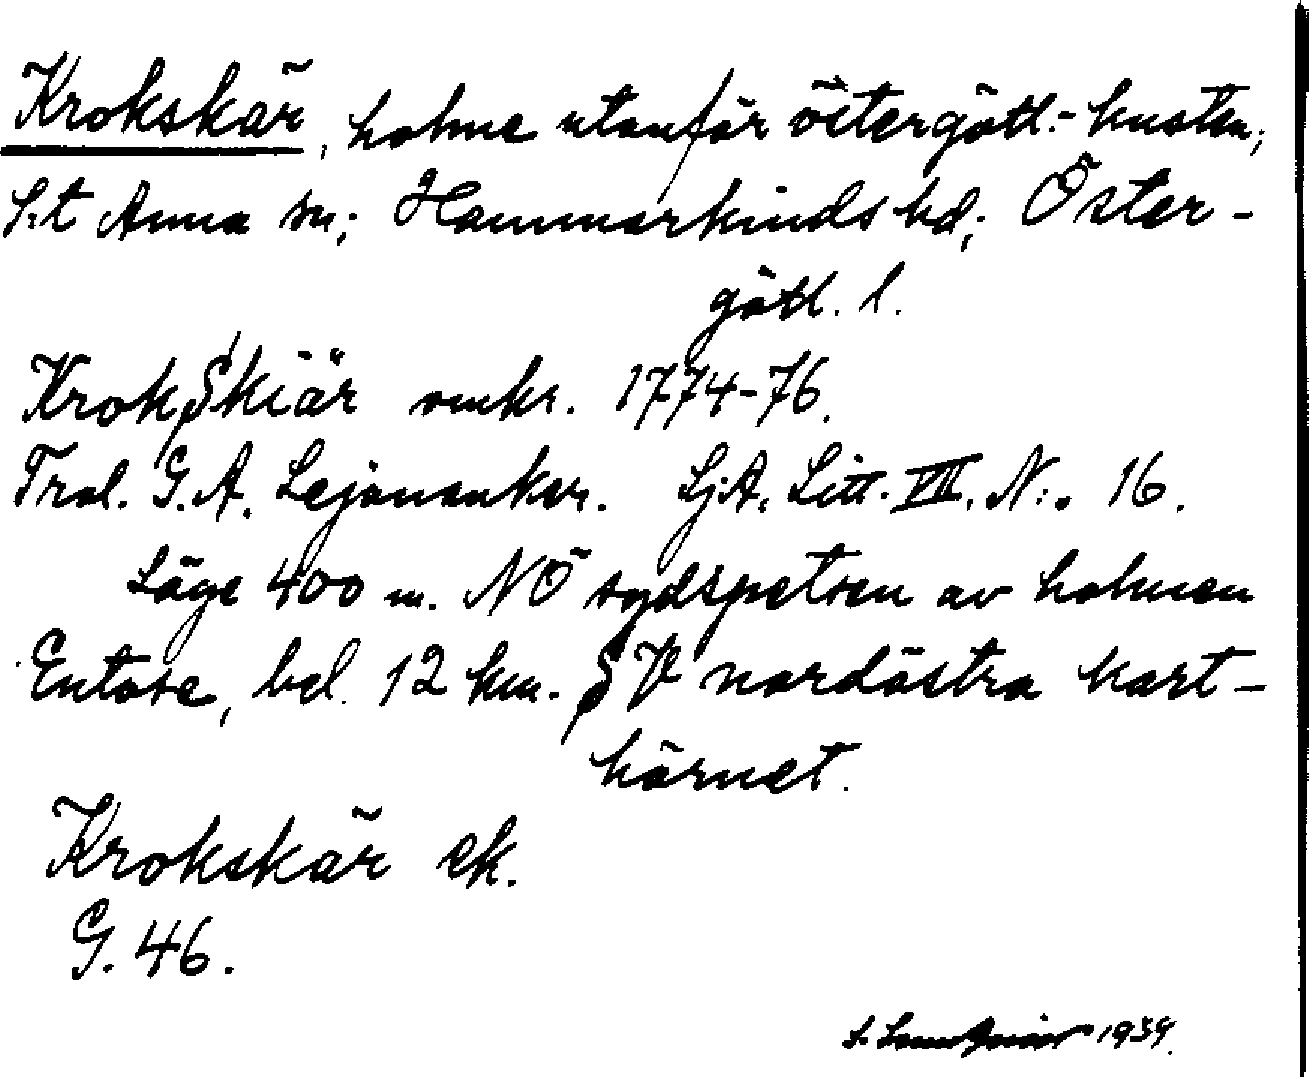 Krokskär, holme utanför östergötl.-kusten;
S:t Anna sn; Hammarkinds hd; Öster-
götl. l.
Krok Skiär omkr. 1774-76.
Tral. G. A. Lejonanker. Lj.A. Litt. VIII. N:o 16.
Läge 400 m. NÖ sydspetsen av holmen
Entose, bel. 12 km. SV nordöstra kart-
hörnet.
Krokskär ek.
G. 46.
1939.